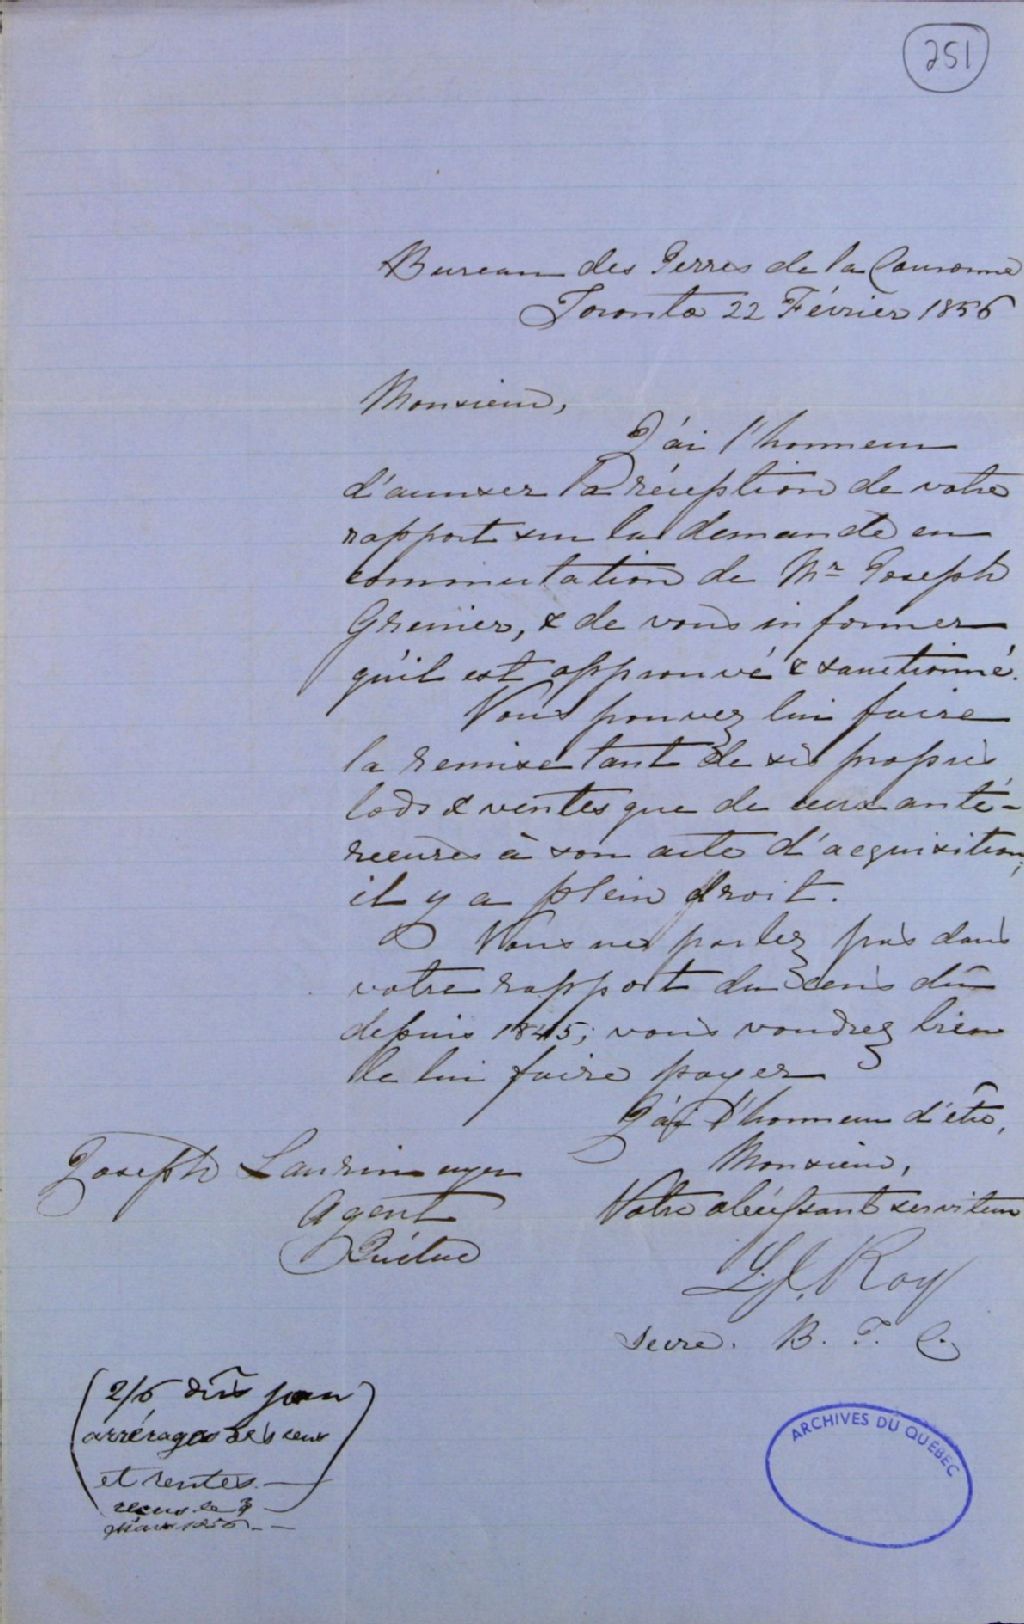 251
Bureau des Terres de la Couronne
Toronto 22 Février 1856
Monsieur,
J'ai l'honneur
d'accuser la réception de votre
rapport sur la demande en
commutation de Mr Joseph
Grenier, & de vous informer
qu'il est approuvé & sanctionné.
Vous pouvez lui faire
la remise tant de ses propres
lods & ventes que de ceux anté-
rieures à son acte d'acquisition,
il y a plein droit.
Vous ne parlez pas dans
votre rapport du cens dû
depuis 1845; vous voudrez bien
le lui faire payer
J'ai l'honneur d'être,
Monsieur,
Votre obéissant serviteur
L. J. Roy
Secre. B. T. C.
Joseph Laurin
Agent
Québec
(2/6 dûs pour
arrérages des cens
et rentes.
reçus le
Mars 1856
ARCHIVES DU QUÉBEC